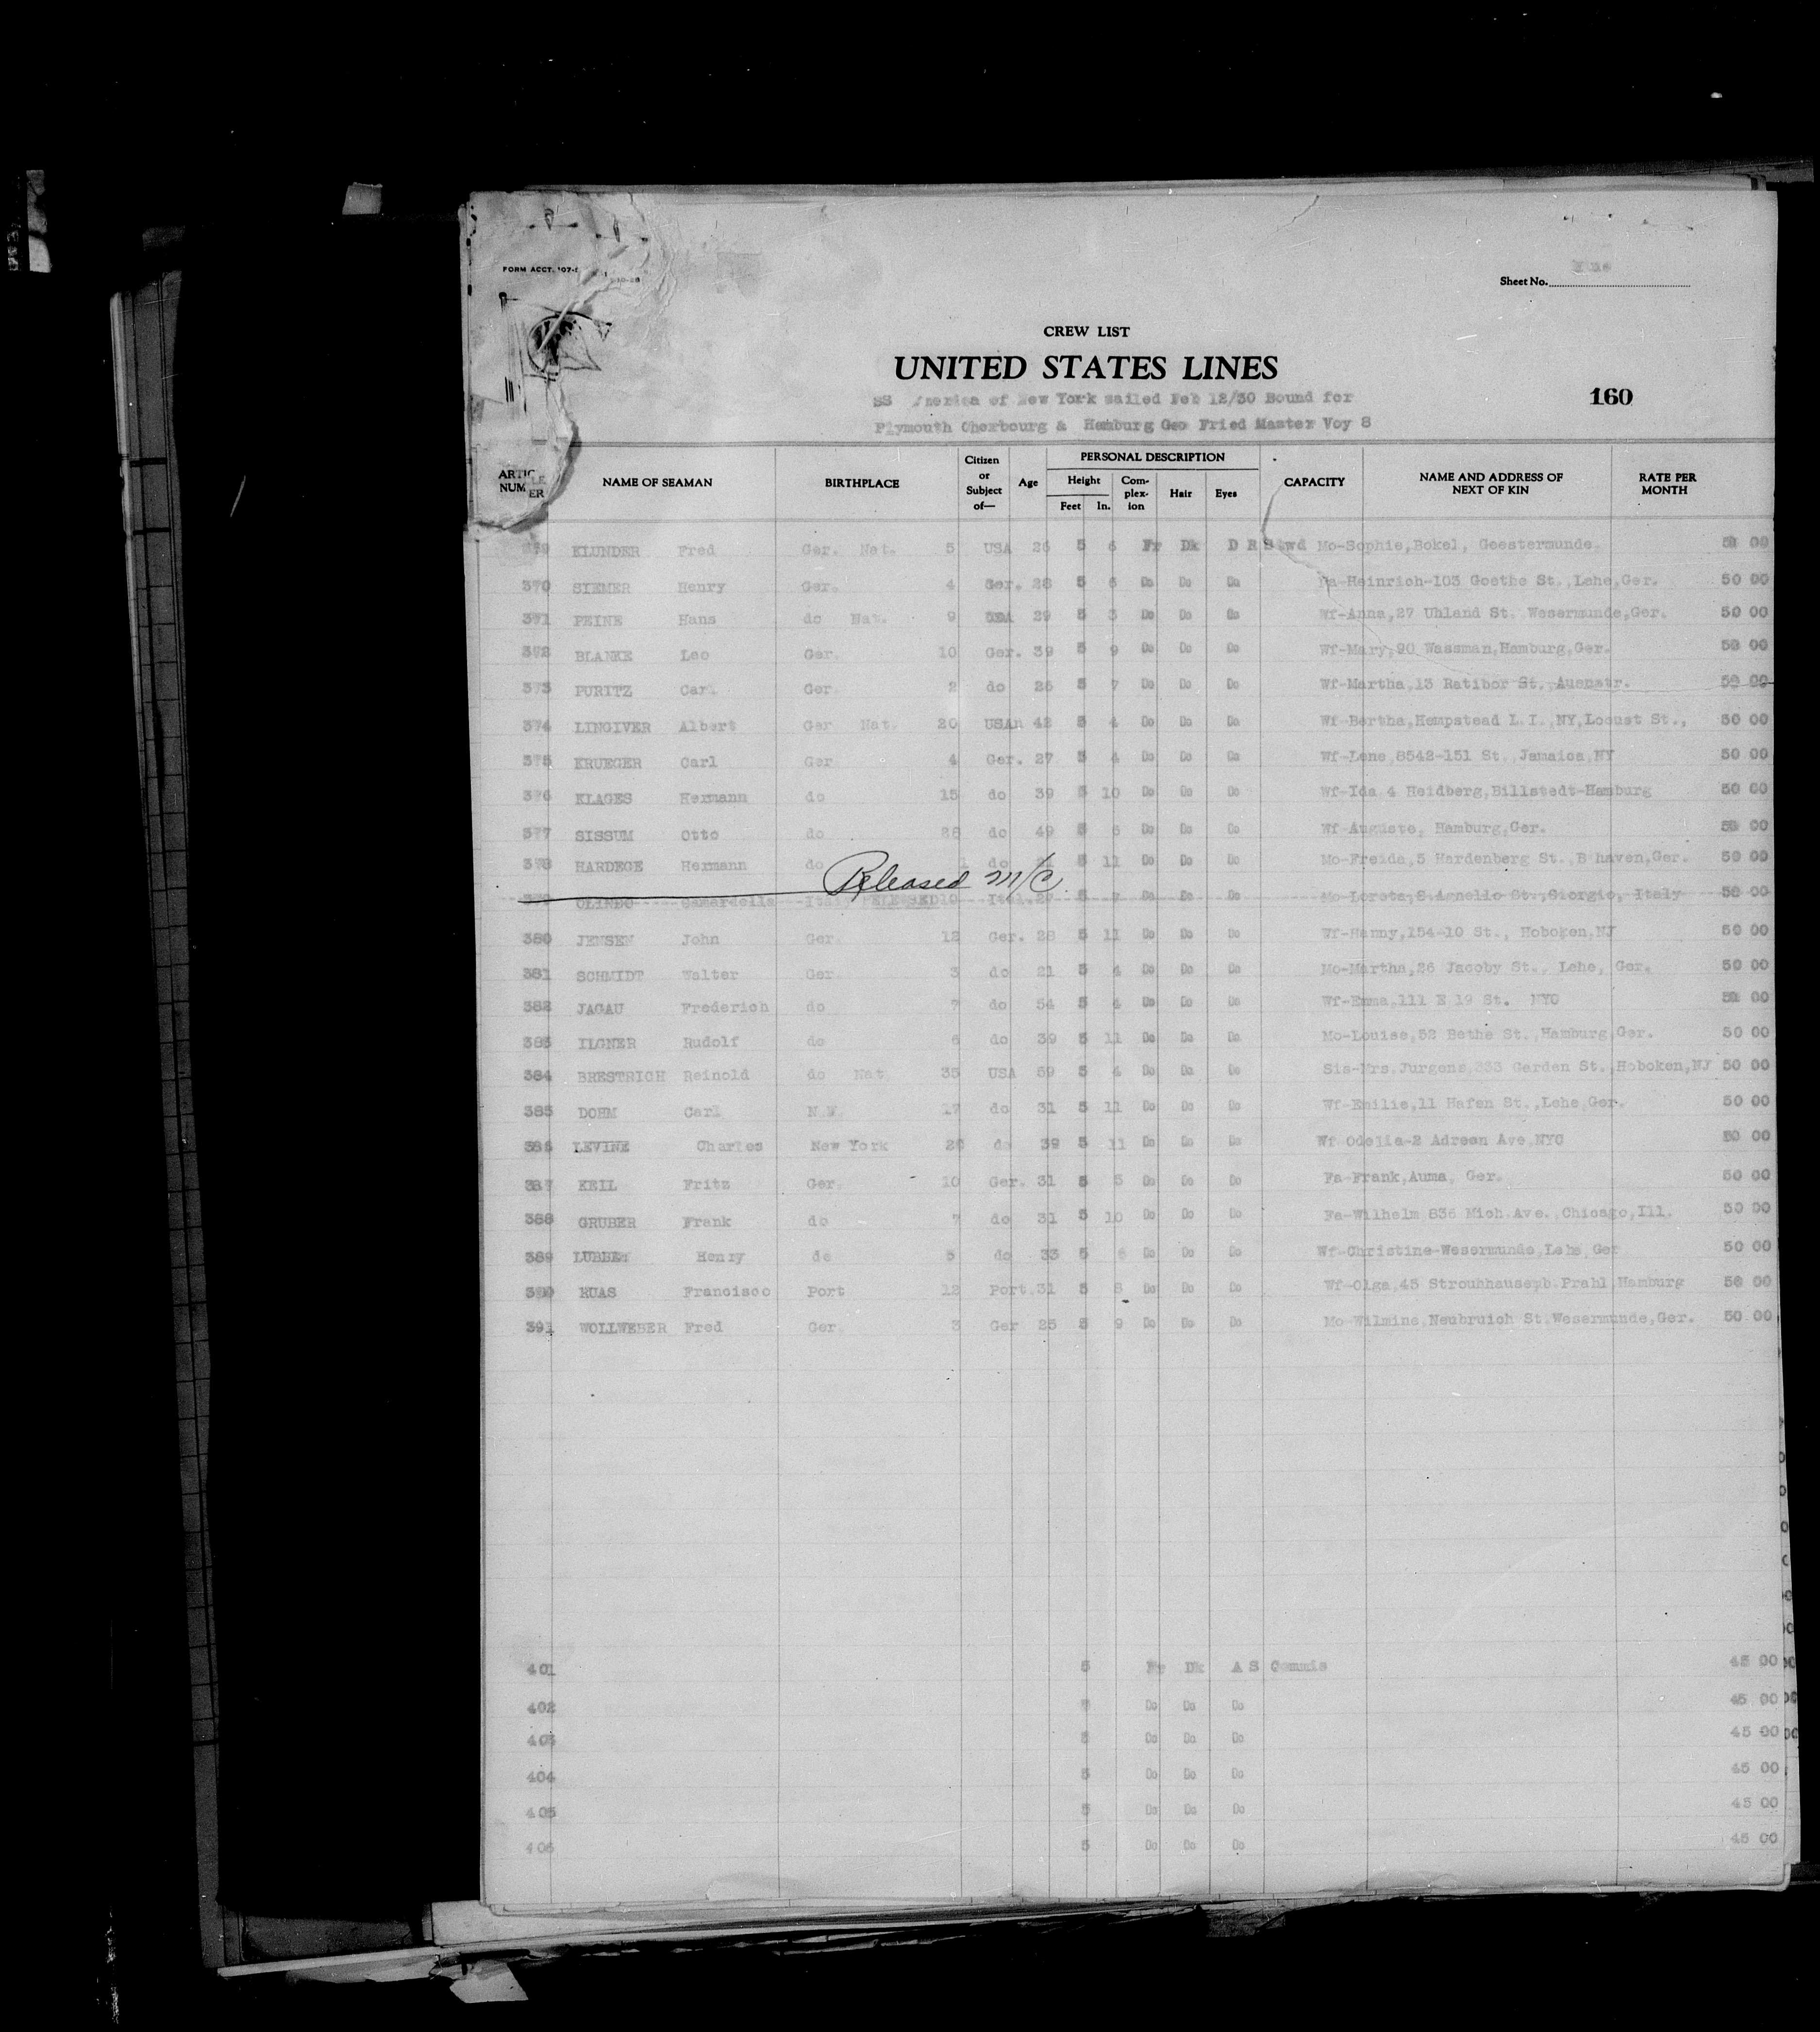 FORM ACCT. 107-
10-28
Sheet No.
CREW LIST
UNITED STATES LINES
SS America of New York sailed Feb 12/30 Bound for
160
Plymouth Cherbourg & Hamburg Geo Fried Master Voy 8
ARTICLE NUMBER NAME OF SEAMAN BIRTHPLACE Citizen or Subject of— Age PERSONAL DESCRIPTION Height Feet In. Com-plex-ion Hair Eyes CAPACITY NAME AND ADDRESS OF NEXT OF KIN RATE PER MONTH
KLUNDER Fred Ger. Nat. 5 USA 26 5 6 Fr Dk D R Stwd Mo-Sophie, Bokel, Geestermunde. 50 00
370 SIEMER Henry Ger. 4 Ger. 28 5 6 Do Do Do Fa-Heinrich-103 Goethe St., Lehe, Ger. 50 00
371 PEINE Hans do Nat. 9 USA 29 5 3 Do Do Do Wf-Anna, 27 Uhland St. Wesermunde, Ger. 50 00
372 BLANKE Leo Ger. 10 Ger. 39 5 9 Do Do Do Wf-Mary, 90 Wassman, Hamburg, Ger. 50 00
373 PURITZ Carl Ger. 2 do 26 5 7 Do Do Do Wf-Martha, 13 Ratibor St., Auenstr. 50 00
374 LINGIVER Albert Ger Nat. 20 USAn 42 5 4 Do Do Do Wf-Bertha, Hempstead L.I., NY, Locust St., 50 00
375 KRUEGER Carl Ger 4 Ger. 27 5 4 Do Do Do Wf-Lene, 8542-151 St., Jamaica, NY 50 00
376 KLAGES Hermann do 15 do 39 5 10 Do Do Do Wf-Ida 4 Heidberg, Billstedt-Hamburg 50 00
377 SISSUM Otto do 28 do 49 5 6 Do Do Do Wf Auguste, Hamburg, Ger. 50 00
378 HARDEGE Hermann do 1 do 5 11 Do Do Do Mo-Freida, 5 Hardenberg St., B'haven, Ger. 50 00
Released M/C
OLINDO Camardella Ital. RELEASED 10 Ital. 27 5 7 Do Do Do Mo-Loreta, S Agnello St., Giorgio, Italy 50 00
380 JENSEN John Ger. 12 Ger. 28 5 11 Do Do Do Wf-Hanny, 154-10 St., Hoboken, NJ 50 00
381 SCHMIDT Walter Ger. 3 do 21 5 4 Do Do Do Mo-Martha, 26 Jacoby St., Lehe, Ger. 50 00
382 JAGAU Frederich do 7 do 54 5 4 Do Do Do Wf-Emma, 111 E 19 St. NYC 50 00
383 ILGNER Rudolf do 6 do 39 5 11 Do Do Do Mo-Louise, 52 Bethe St., Hamburg, Ger. 50 00
384 BRESTRICH Reinold do Nat 35 USA 59 5 4 Do Do Do Sis-Mrs. Jurgens, 333 Garden St., Hoboken, NJ 50 00
385 DOHM Carl N.W. 17 do 31 5 11 Do Do Do Wf-Emilie, 11 Hafen St., Lehe, Ger. 50 00
386 LEVINE Charles New York 26 do 39 5 11 Do Do Do Wf Odelia-2 Adrean Ave, NYC 50 00
387 KEIL Fritz Ger. 10 Ger. 31 5 5 Do Do Do Fa-Frank, Auma, Ger. 50 00
388 GRUBER Frank do 7 do 31 5 10 Do Do Do Fa-Wilhelm 836 Mich. Ave., Chicago, Ill. 50 00
389 LUBBEN Henry do 5 do 33 5 6 Do Do Do Wf-Christine-Wesermunde, Lehe, Ger 50 00
390 RUAS Francisco Port 12 Port. 31 5 8 Do Do Do Wf-Olga, 45 b. Prahl, Hamburg 50 00
391 WOLLWEBER Fred Ger. 3 Ger 25 5 9 Do Do Do Mo-Wilmine, Neubruich St. Wesermunde, Ger. 50 00
401 5 Fr Dk A S Commis 45 00
402 5 Do Do Do 45 00
403 5 Do Do Do 45 00
404 5 Do Do Do 45 00
405 5 Do Do Do 45 00
406 5 Do Do Do 45 00